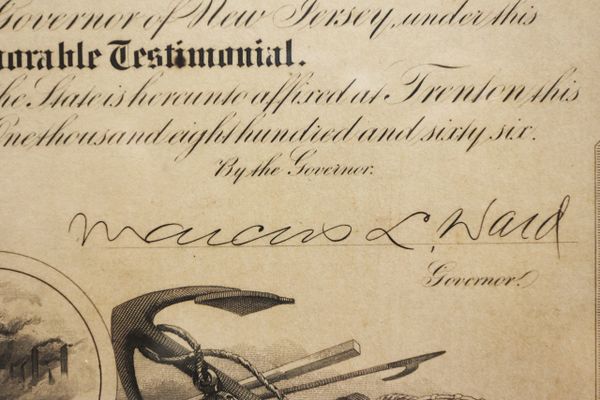 Governor of New Jersey, under this
norable Testimonial.
he State is hereunto affixed at Trenton this
One thousand eight hundred and sixty six.
By the Governor.
Marcus L. Ward
Governor.